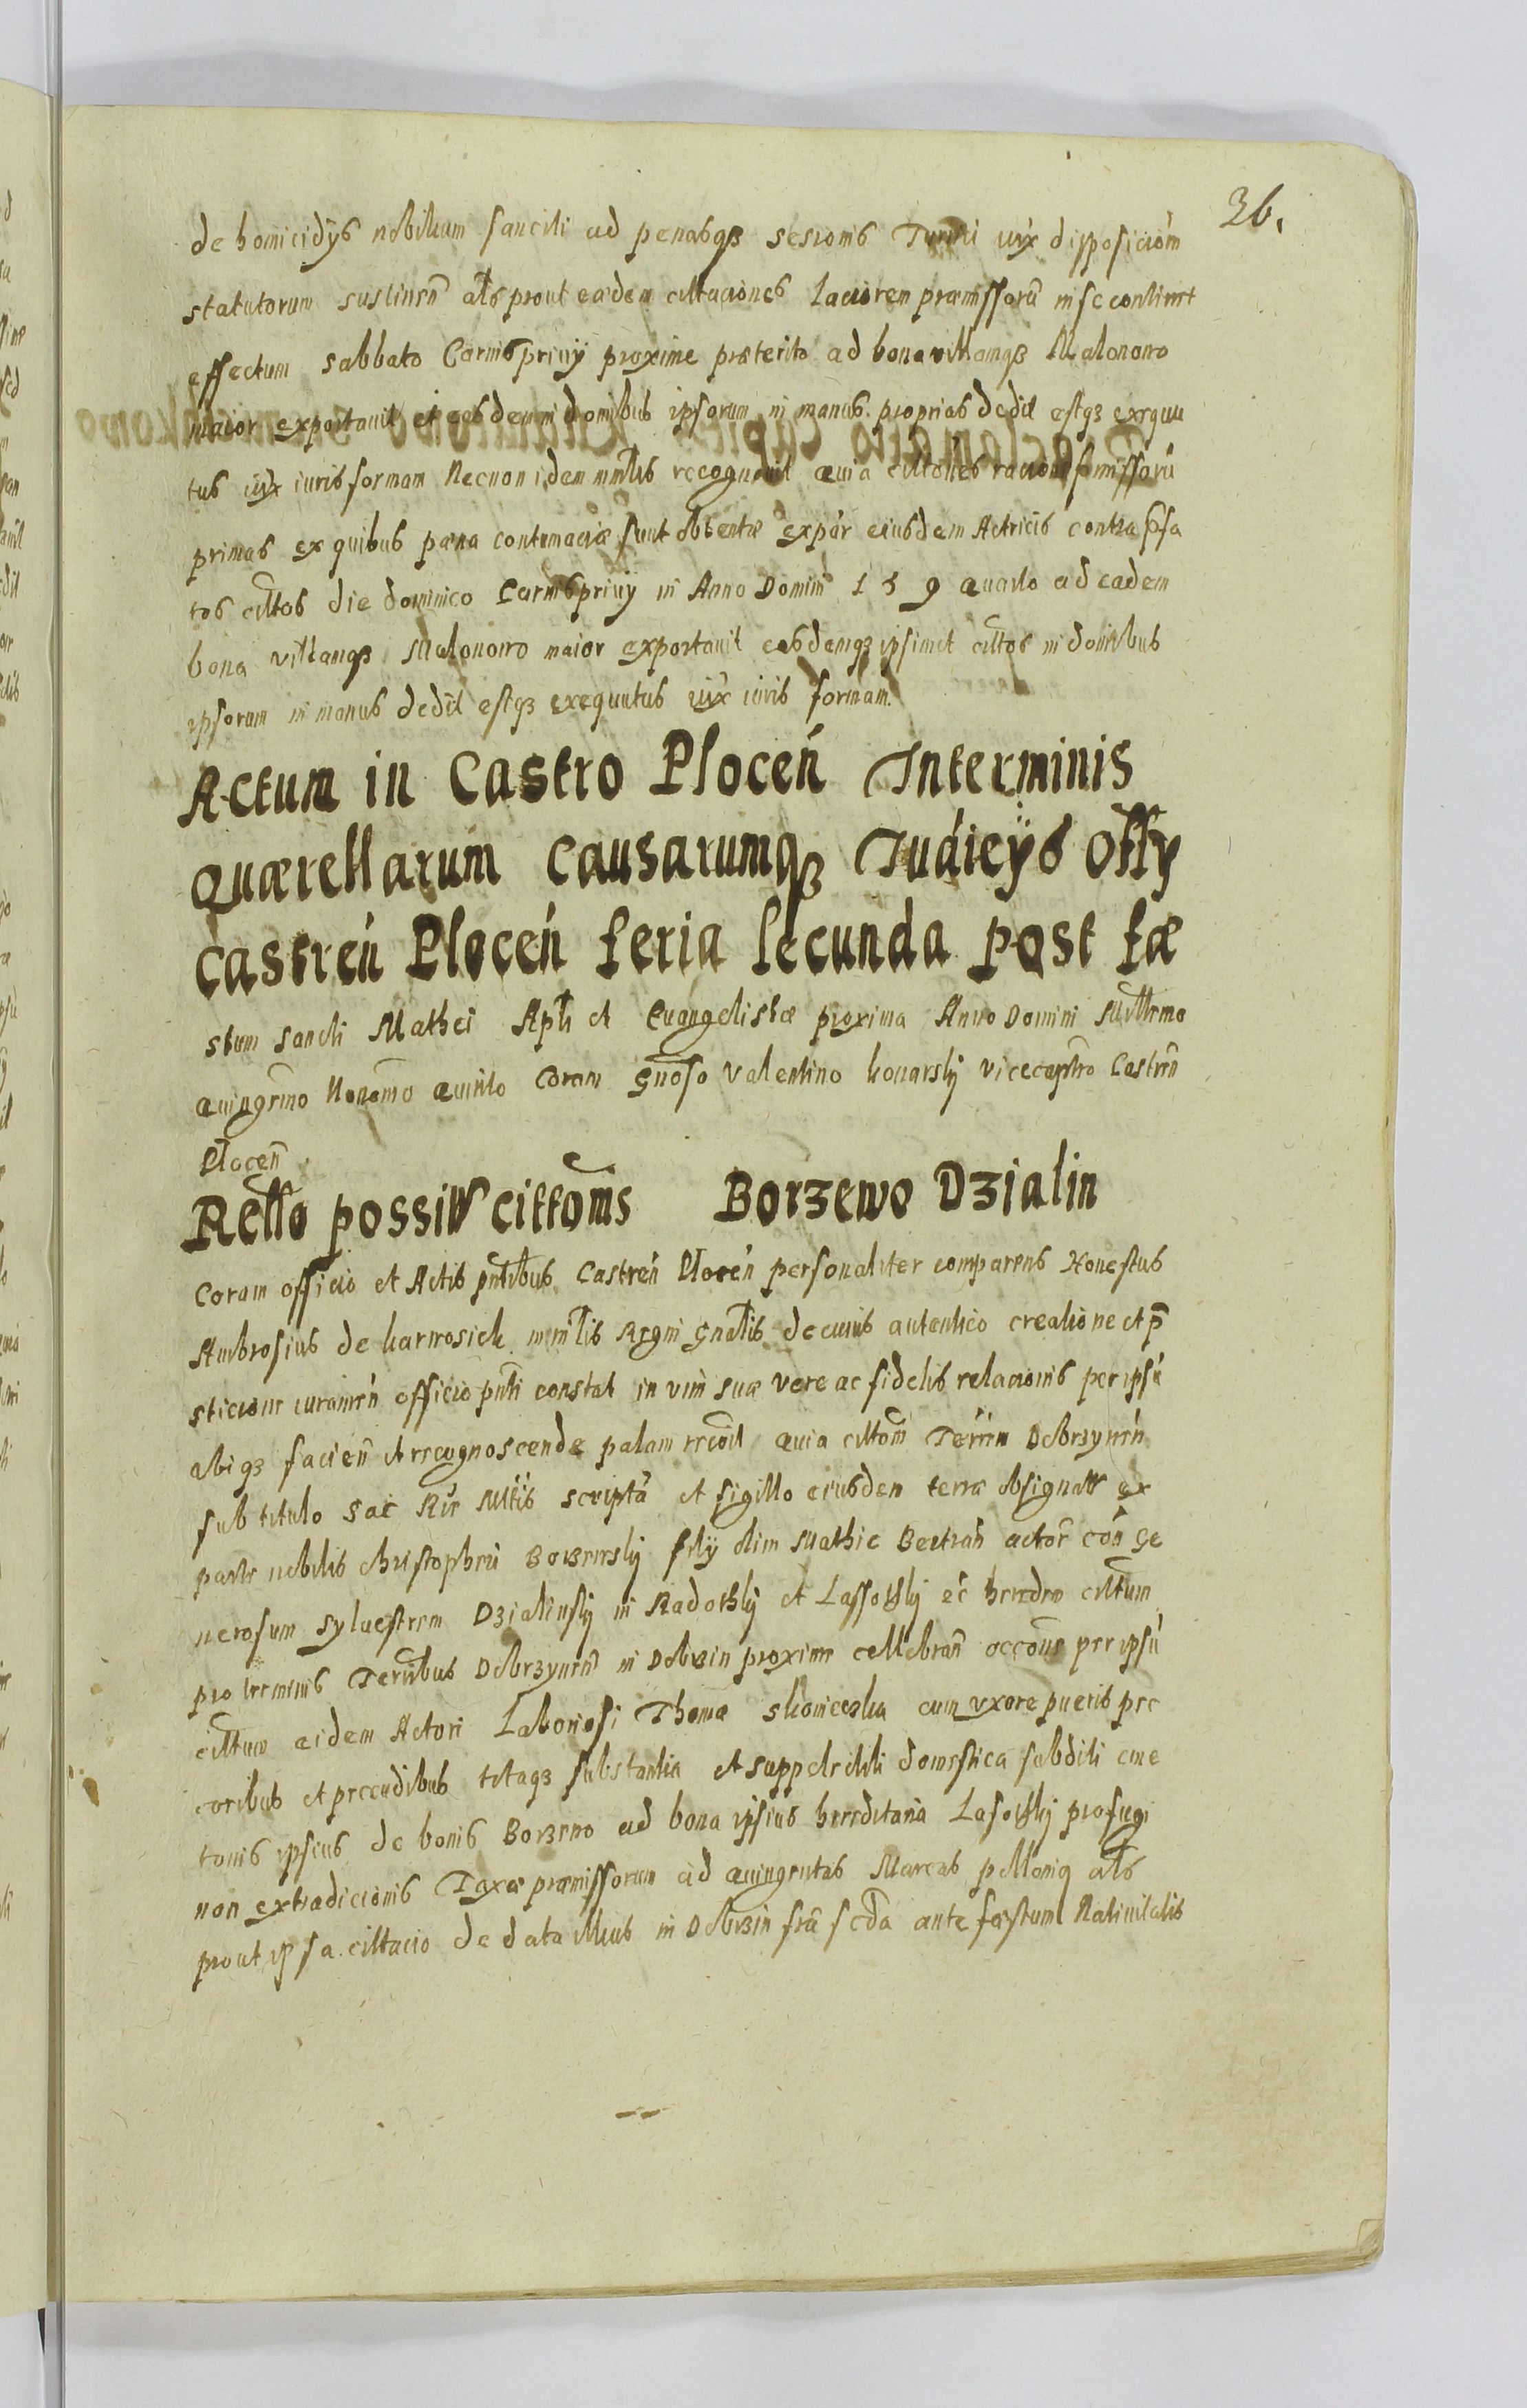 36.
de homicidÿs nobilium sanciti ad penasqȝ sesionis Turris iux disposiciōm
statutorum sustinēn als prout eædem cittaciones laciorem præmissorū in se continet
effectum sabbato Carnisprivÿ proxime præterito ad bona villamqȝ Malonowo
maior exportavit et easdem in domibus ipsorum in manus proprias dedit estqȝ exequu
tus iux iuris formam Necnon idem mīnlis recognovit quia cittōnes racione præmissorū
primas ex quibus pæna contumaciæ sunt obtentæ ex pār eiusdem Actricis contra ipsa
tos cittos die dominico Carnisprivÿ in Anno Domini 1 5 9 quarto ad eadem
bona villamqȝ Malonowo maior exportavit easdemqȝ ipsimet cittos in domibus
ipsorum in manus dedit estqȝ exequutus iux iuris formam.
Actum in Castro Ploceń Interminis
Quærellarum Causarumqȝ Judicÿs Offy
Castreń Ploceń feria secunda post fæ
stum sancti Mathei Apli et Evangelistæ proxima Anno Domini Millrmo
quingrmo Nonomo quinto Coram Gnoso Valentino Kovarskÿ vicecaptro Castrēn
Plocēn
Rello possiłł cittōnis Borzewo Dzialin
Coram officio et Actis pntibus Castreń Ploceń personaliter comparens Honestus
Ambrosius de Karwosiek mīnlis Regni Gnalis de cuius autentico creatione et p̄
sticione iuramēn officio pnti constat in vim suæ veræ ac fidelis relacionis per ipsū
ibiqȝ faciēn et recognoscendæ palam recoīt quia cittōm Terrēn Dobrzynēn
sub titulo Sac Rīæ Mttis scriptā et sigillo eiusdem terræ obsignatt ex
parte nobilis Christopheri Borzewskÿ filÿ olim Mathiæ Bertrān actōr cōn Ge
nerosum Sylvestrem Dzialinskÿ in Radothkÿ et Lassothkÿ ec̄ heredem cittum
pro terminis Terrībus Dobrzynēn in Dobrzin proxime cellebrān occōne per ipsū
cittum eidem Actori Laboriosi Thomæ cum uxore pueris pec
coribus et peccudibus totaqȝ substantia et suppelectili domestica subditi cme
tonis ipsius de bonis Borzewo ad bona ipsius hereditaria Lasothkÿ profugi
non extradicionis Taxæ præmissorum ad quingentas Marcas pollonicas als
prout ipsa cittacio de data illius in Dobrzin fria scda ante fæstum Nativitatis